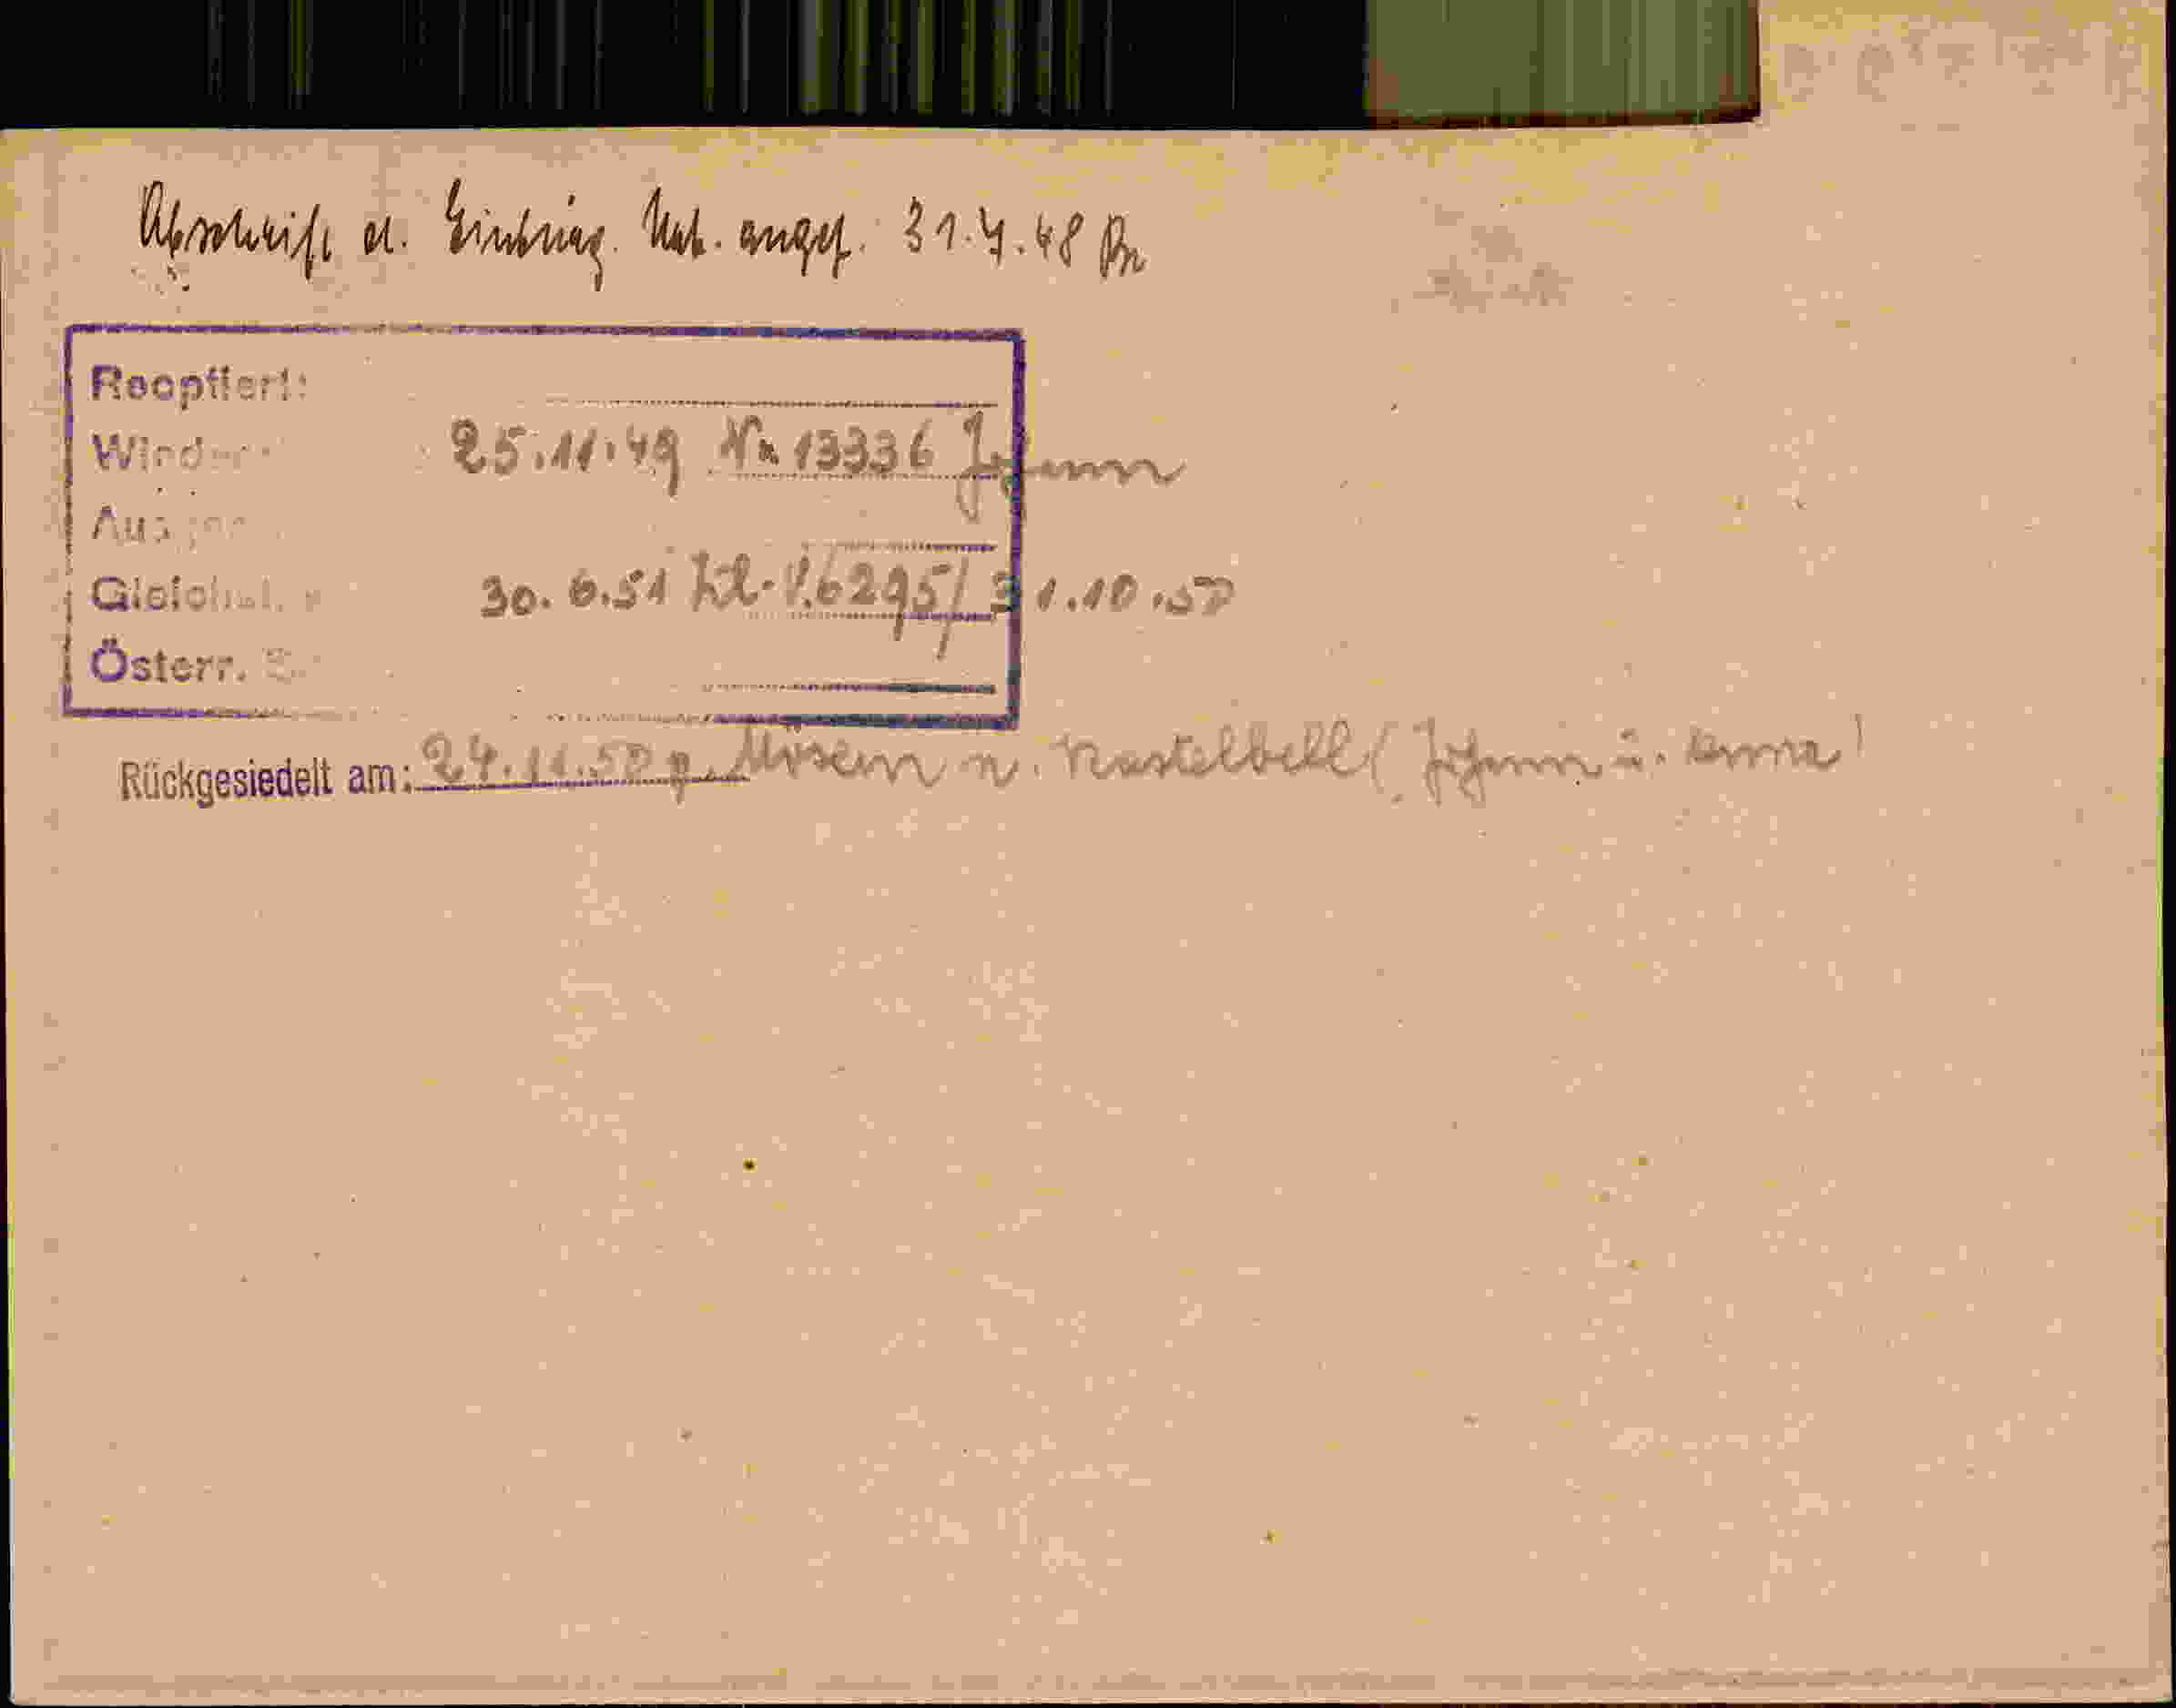 Abschrift d. Einbürg. Urk. angef. 31.7.48
Reoptiert:
25.11.49 Nr. 13336 Johann
30.6.51 Zl. 6295/31.10.50
Österr.
Rückgesiedelt am: 24.11.50 Mösern n. Kastelbell (Johann u. Anna)